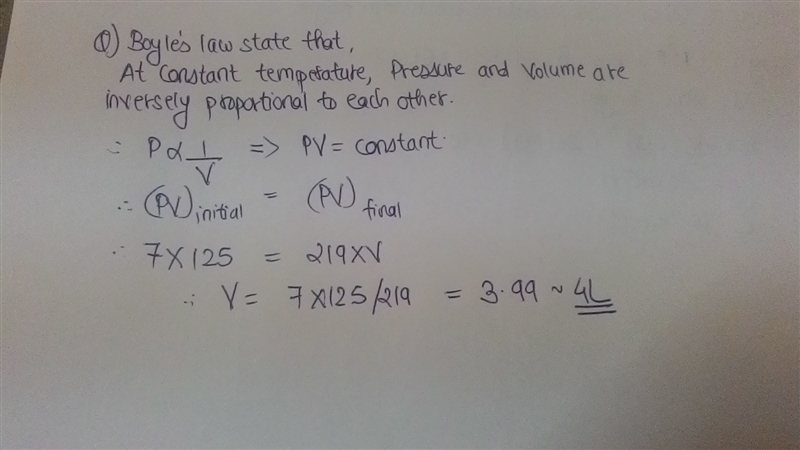 Q) Boyle's law state that,
At constant temperature, Pressure and Volume are
inversely proportional to each other.
∴ P ∝ 1/V => PV = constant.
∴ (PV)initial = (PV)final
∴ 7×125 = 219×V
∴ V = 7×125/219 = 3.99 ~ 4L